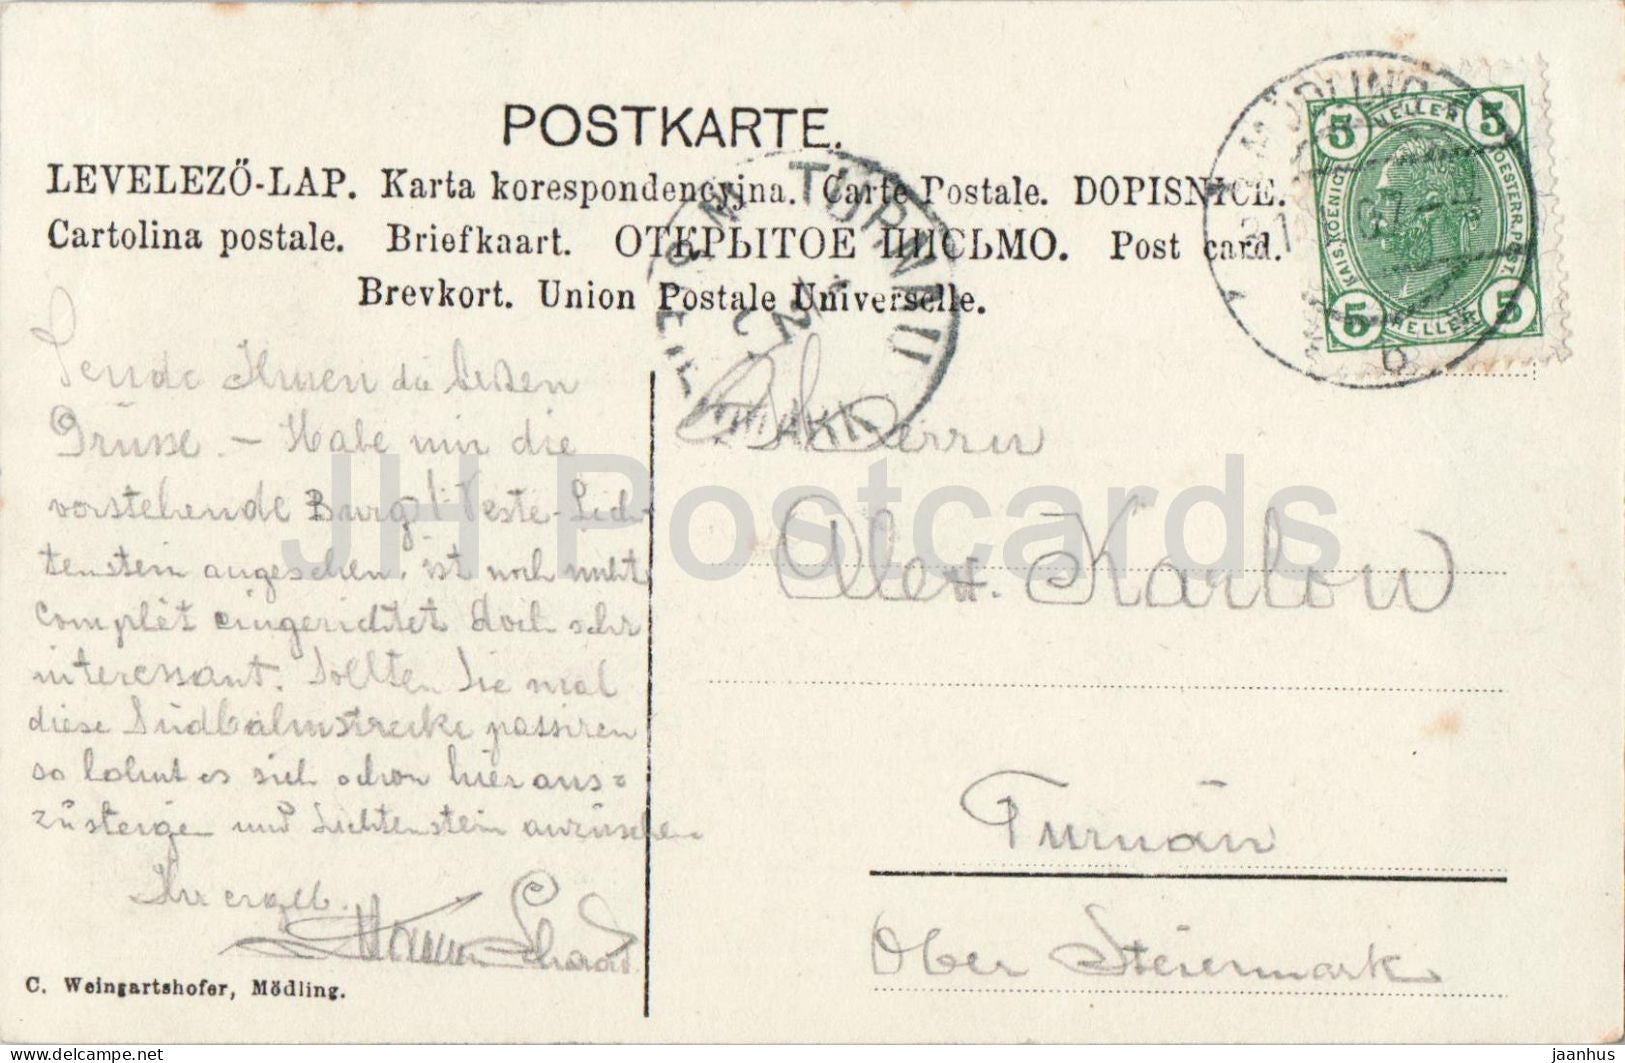 POSTKARTE.
LEVELEZŐ-LAP. Karta korespondencyjna. Carte Postale. DOPISNICE.
Cartolina postale. Briefkaart. ОТКРЫТОЕ ПИСЬМО. Post card.
Brevkort. Union Postale Universelle.
MÖDLING
6
5 HELLER 5
KAIS. KOENIGL. OESTERR. POST.
5 HELLER 5
TURNAU
STEIERMARK
Sende Ihnen die besten
Grüsse. – Habe mir die
vorstehende Burg Veste-Lich-
tenstein angesehen, ist noch nicht
complèt eingerichtet doch sehr
interessant. Sollten Sie mal
diese Südbahnstrecke passiren
so lohnt es sich schon hier aus=
zusteigen und Lichtenstein anzusehen
Ihr ergeb.
Herrn
Alex. Karlow
Turnau
Ober Steiermark
C. Weingartshofer, Mödling.
JH Postcards
delcampe.net
jaanhus